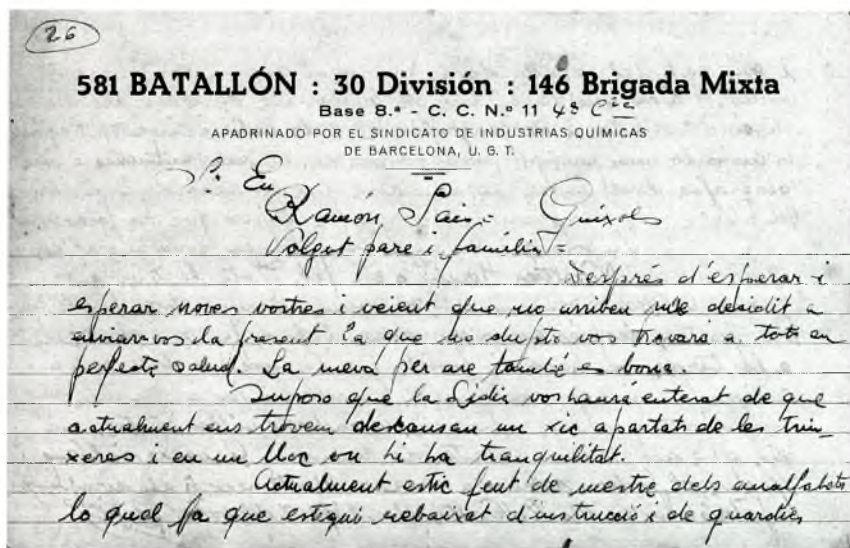 26
581 BATALLÓN : 30 División : 146 Brigada Mixta
Base 8.ª - C. C. N.º 11 4ª Cia
APADRINADO POR EL SINDICATO DE INDUSTRIAS QUÍMICAS
DE BARCELONA, U. G. T.
Sr. En
Ramón Guixols
Volgut pare i familia =
Després d'esperar i
esperar noves vostres i veient que no arriben m'he decidit a
enviarvos la present la que no dupto vos trovará a tots en
perfecte salud. La meva per are també es bona.
Suposo que la Lidia vos haurá enterat de que
actualment ens trovem descansan un xic apartats de les trin-
xeres i en un lloc on hi ha tranquilitat.
Actualment estic fent de mestre dels analfabets
lo qual fa que estigui rebaixat d'instrucció i de guardies,